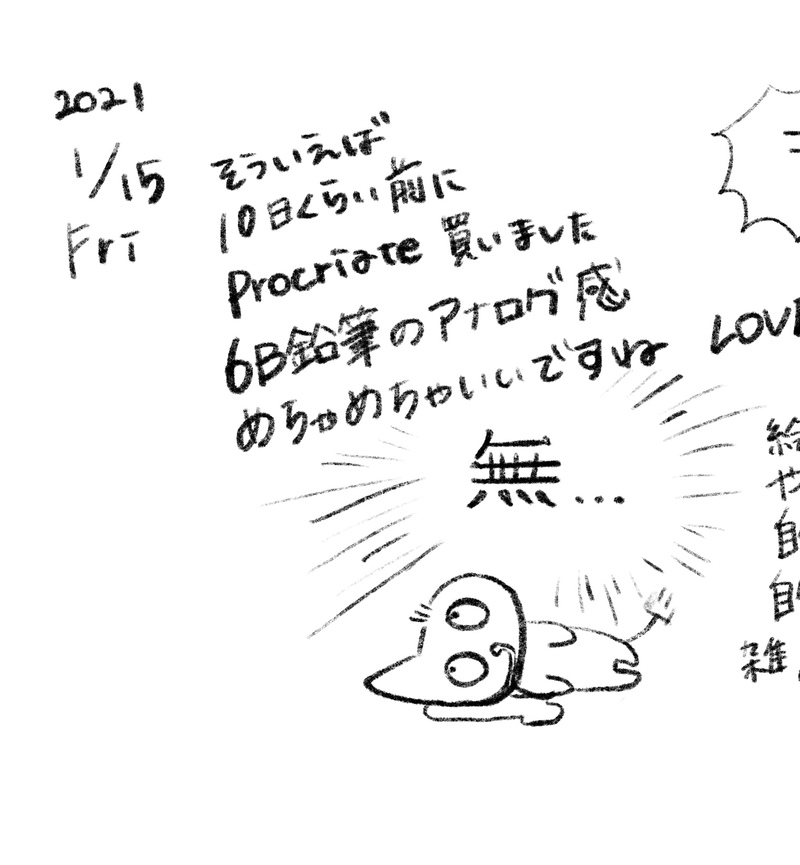 2021
1/15
Fri
そういえば
10日くらい前に
Procriate 買いました
6B鉛筆のアナログ感
めちゃめちゃいいですね
無...
LOVE
絵
や
自
自
雑